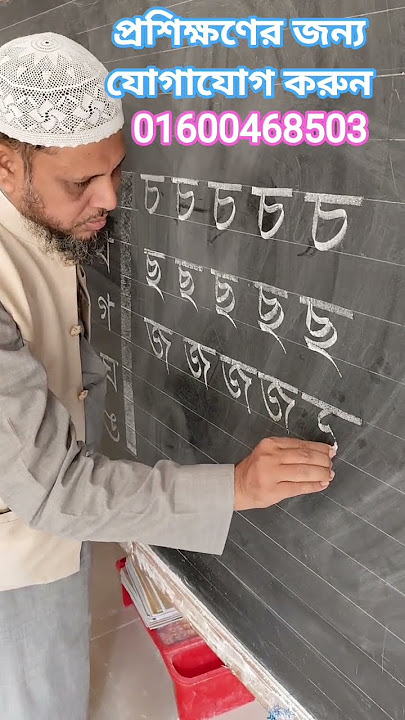 প্রশিক্ষণের জন্য
যোগাযোগ করুন
01600468503
চ চ চ চ চ
ছ ছ ছ ছ ছ
জ জ জ জ